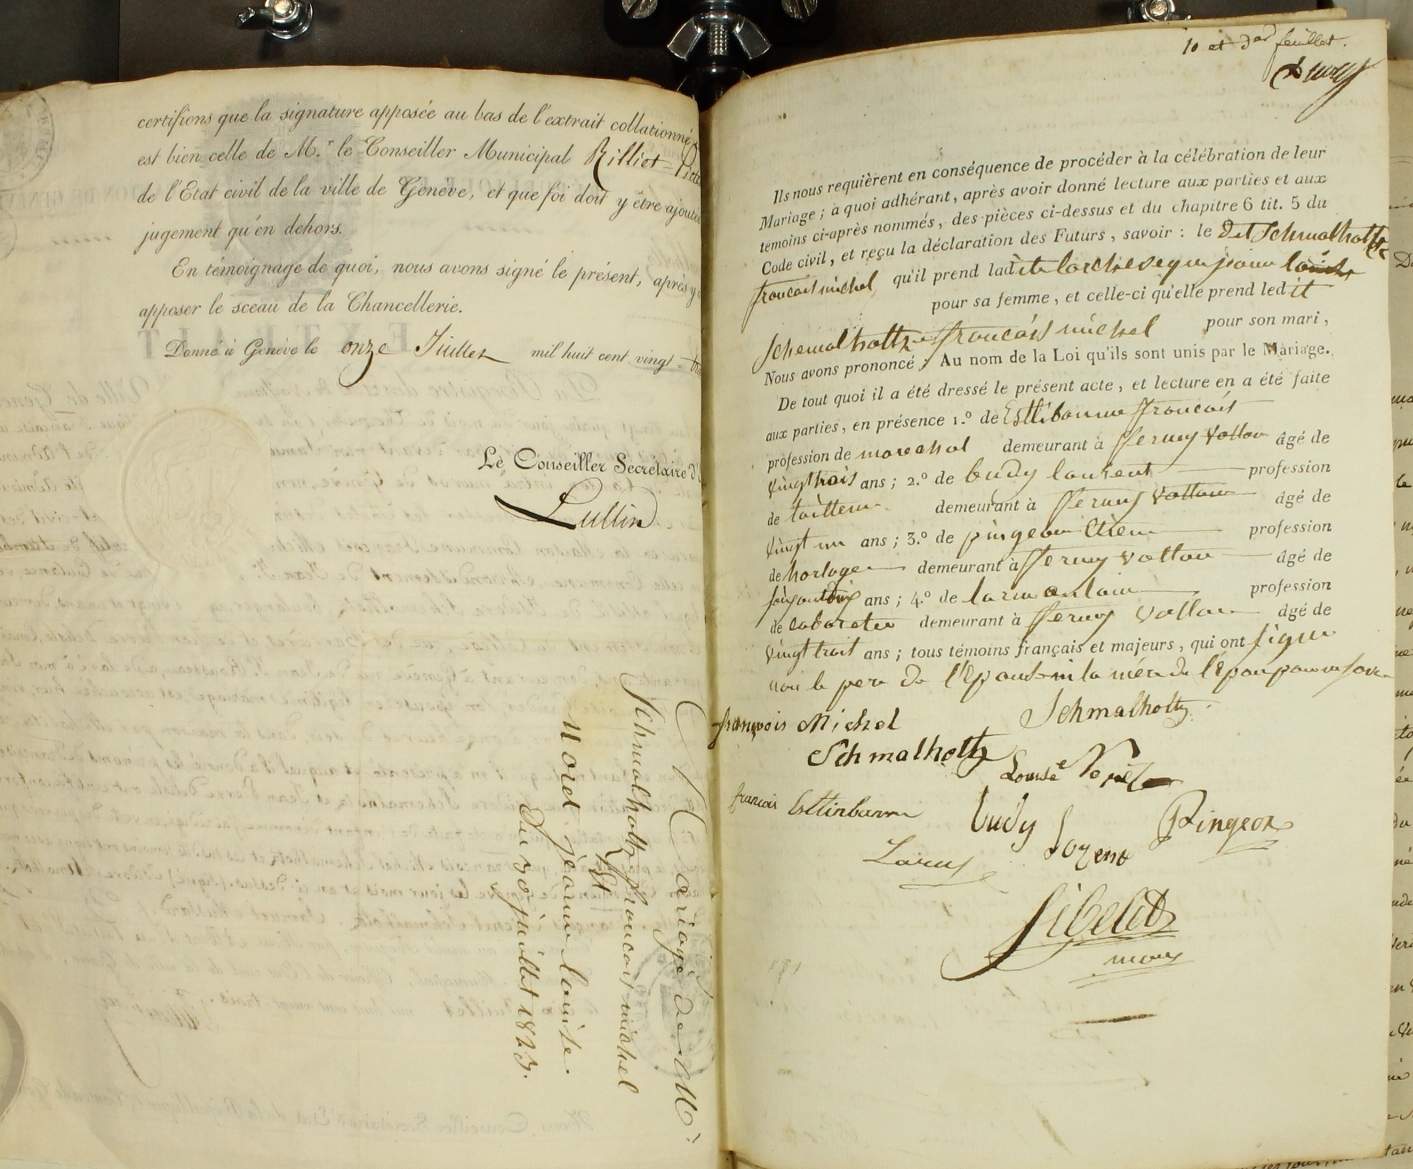 certifions que la signature apposée au bas de l'extrait collationné
est bien celle de M.r le Conseiller Municipal Rilliet =
de l'Etat civil de la ville de Genève, et que foi doit y être ajoutée
jugement qu'en dehors.
En témoignage de quoi, nous avons signé le présent, après y
apposer le sceau de la Chancellerie.
Donné à Genève le onze Juillet mil huit cent vingt-
Le Conseiller Secrétaire d
Lullin
Mariage de M.
Schmalholtz francois michel
Et
Norel jeanne louise.
Du 30 juillet 1823.
10 et Der feuillet.
Ils nous requièrent en conséquence de procéder à la célébration de leur
Mariage ; à quoi adhérant, après avoir donné lecture aux parties et aux
témoins ci-après nommés, des pièces ci-dessus et du chapitre 6 tit. 5 du
Code civil, et reçu la déclaration des Futurs, savoir : le dit Schmalholtz
francois michel qu'il prend ladite
pour sa femme, et celle-ci qu'elle prend ledit
Schemalholtz francois michel pour son mari,
Nous avons prononcé : Au nom de la Loi qu'ils sont unis par le Mariage.
De tout quoi il a été dressé le présent acte, et lecture en a été faite
aux parties, en présence 1.º de Esttibanne francois
profession de marechal demeurant à ferney Voltair âgé de
vingt trois ans ; 2.º de budy laurent profession
de taitteur demeurant à fernuy Voltair âgé de
vingt un ans ; 3.º de pingeon profession
de horloger demeurant à fernuy voltair âgé de
ans ; 4.º de larue antoine profession
de cabaretier demeurant à fernuy Voltair âgé de
vingt trois ans ; tous témoins français et majeurs, qui ont signe
non le pere de l'Epouse ni la mère de l'épou pour ne savoir
françois Michel Schmalholtz
Schmalholtz
Louise
francois Esttinbanne budy Lorent Pingeon
Larue
Sibelet
maire